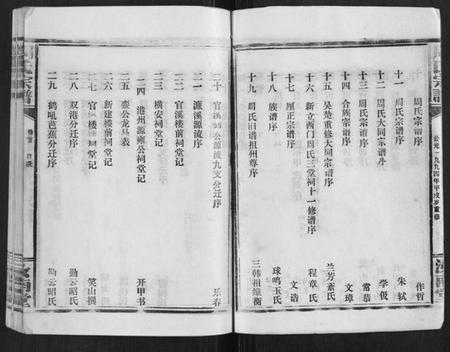 公元一九九四年甲戌岁重修
十一 周氏宗谱序 作哲
十二 周氏大同宗谱序 朱轼
十三 周氏宗谱序 李伋
十四 合族宗谱序 常恭
十五 吴楚重修大同宗谱序 文璋
十六 新立西门周氏三堂祠十一修谱序 兰芳素氏
十七 厘正宗谱序 程章氏
十八 族谱序 文诰
十九 周氏旧谱祖州尊序 球鸣玉氏
三韩祖维衡
二十 官溪 源流九支分迁序 乐春
二一 濂溪源流序
二二 官溪楼前祠堂记
二三 横安祠堂记
二四 港州源雍公祠堂记 开甲书
二五 銮公龙马表
二六 新建楼前祠堂记
二七 官 楼 祠堂记 笑山撰
二八 双港分迁序 勤云昭氏
二九 鹤吼芭蕉分迁序 勤云昭氏
卷首 目录
宗谱